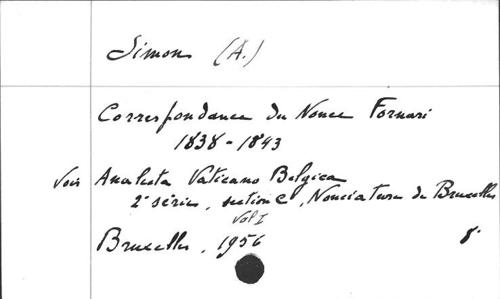 Simons (A.)
Correspondance du Nonce Fornari
1838-1843
Voir Analecta Vaticano Belgica
2e série, section C, Nonciature de Bruxelles
Vol I
Bruxelles, 1956 8°